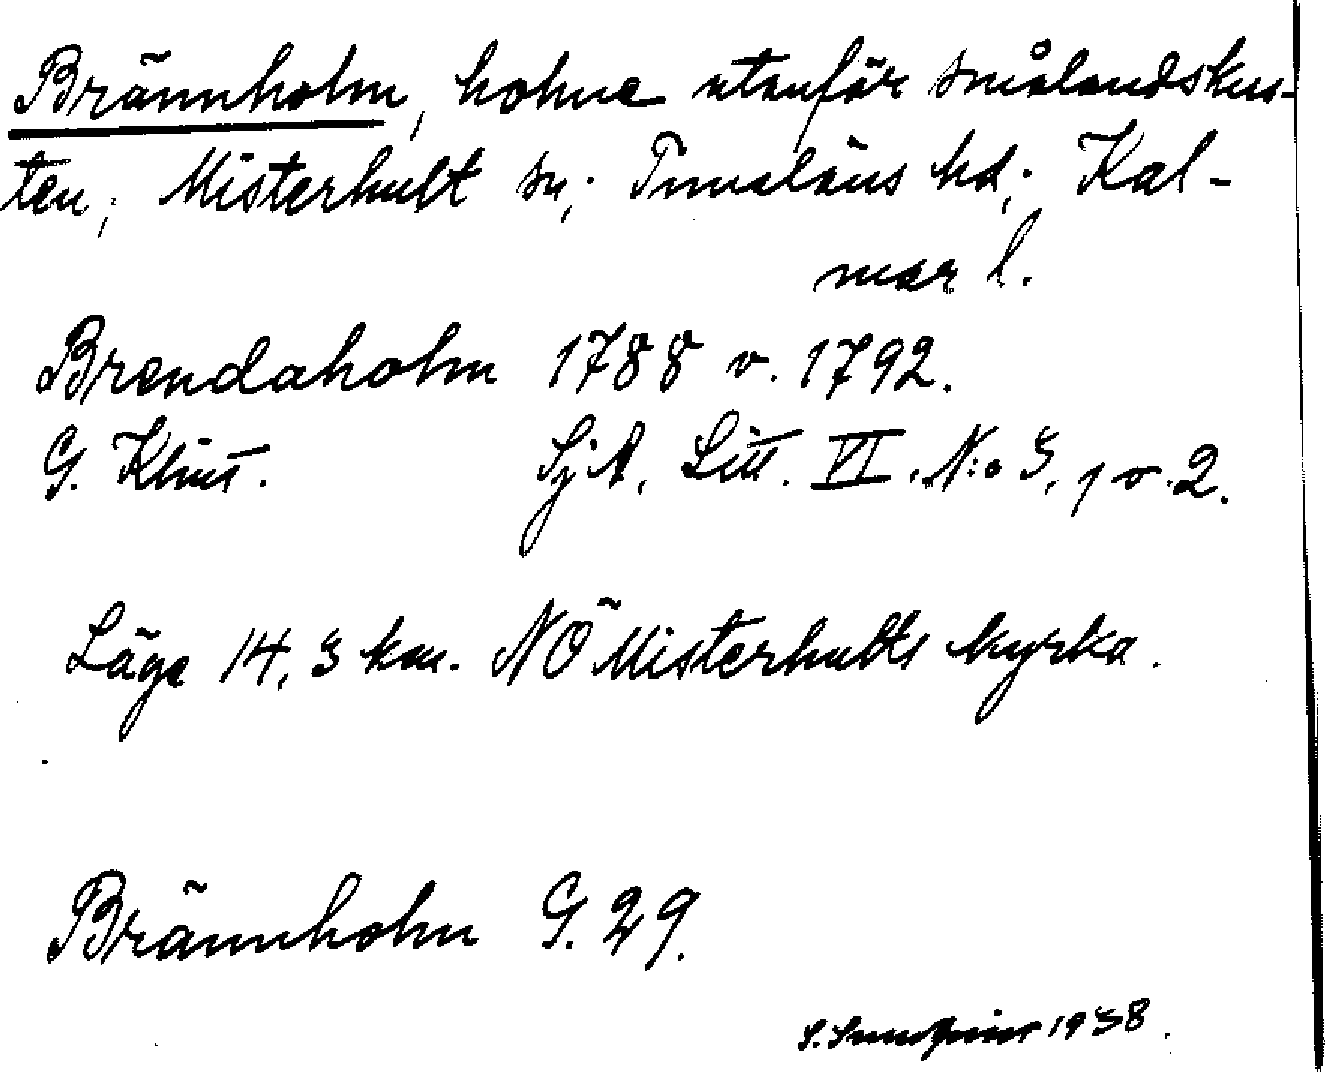 Brännholm, holme utanför smålandskus-
ten; Misterhult sn; Tunaläns hd; Kal-
mar l.
Brendaholm 1788 o. 1792.
G. Klint. SjA, Litt. VI. N:o 3, 1 o. 2.
Läge 14,3 km. NÖ Misterhults kyrka.
Brännholm G. 29.
1938.